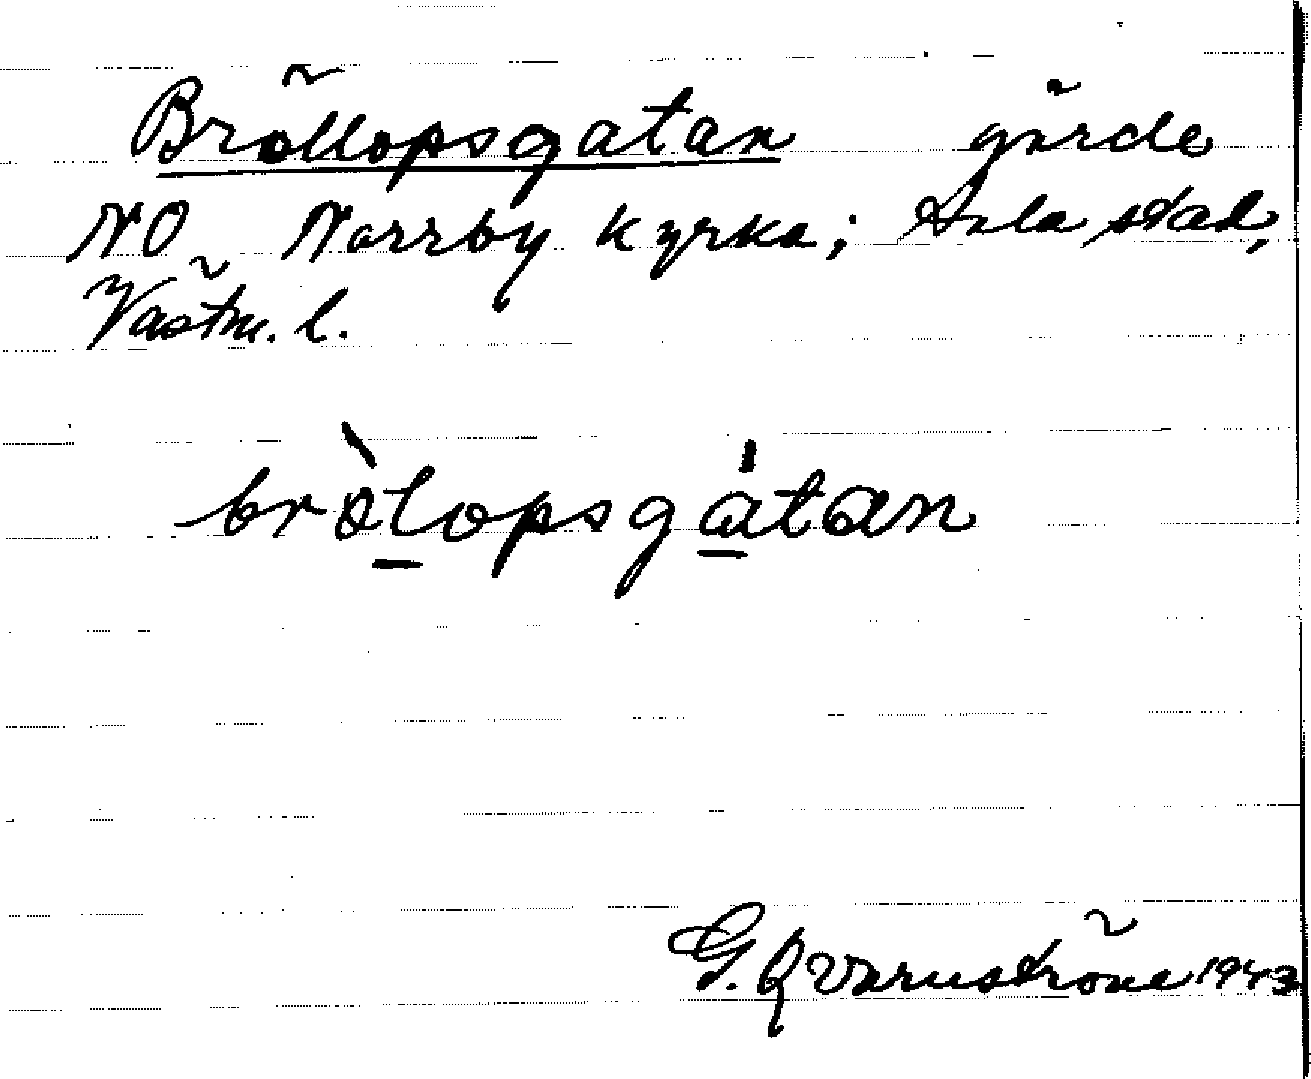 Bröllopsgatan gärde
NO Norrby kyrka; Sala stad,
Västm. l.
brò̱lopsgá̱tan
G. Qvarnström 1943